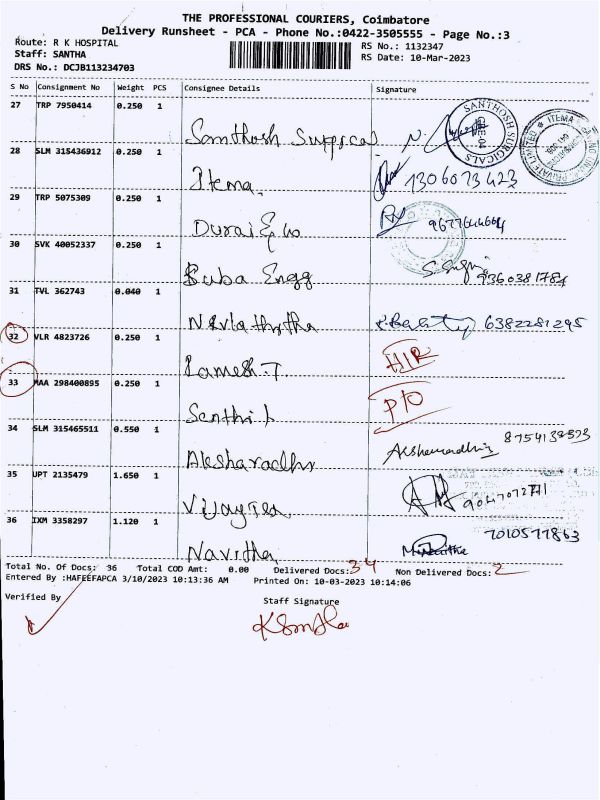 THE PROFESSIONAL COURIERS, Coimbatore
Delivery Runsheet - PCA - Phone No.:0422-3505555 - Page No.:3
Route: R K HOSPITAL
RS No.: 1132347
Staff: SANTHA
RS Date: 10-Mar-2023
DRS No.: DCJB113234703
S No Consignment No Weight PCS Consignee Details Signature
27 TRP 7950414 0.250 1
Santhosh Surgical
SANTHOSH SURGICALS
ITEMA
PRIVATE LIMITED
28 SLM 315436912 0.250 1
Itema. 1306073423
29 TRP 5075309 0.250 1
Durai & Co 9677644664
30 SVK 40052337 0.250 1
Buba Engg 9360381784
31 TVL 362743 0.040 1
6382281295
32 VLR 4823726 0.250 1
Ramesh.T H/R
33 MAA 298400895 0.250 1
Senthil P/O
34 SLM 315465511 0.550 1
Aksharadhr 8754138593
35 UPT 2135479 1.650 1
36 IXM 3358297 1.120 1
Navitha 7010577863
Total No. Of Docs: 36 Total COD Amt: 0.00 Delivered Docs: 34 Non Delivered Docs: 2
Entered By :HAFEEFAPCA 3/10/2023 10:13:36 AM Printed On: 10-03-2023 10:14:06
Verified By Staff Signature